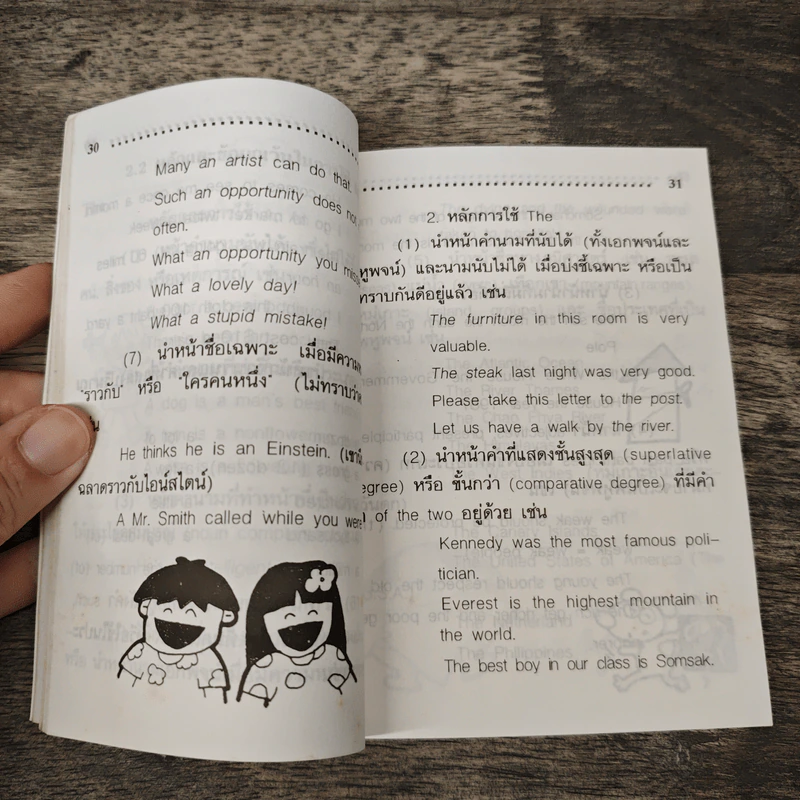 30
Many an artist can do that.
Such an opportunity does not
often.
What an opportunity you
What a lovely day!
What a stupid mistake!
(7) นำหน้าชื่อเฉพาะ เมื่อมี
"ราวกับ" หรือ "ใครคนหนึ่ง" (ไม่ทราบว่า
He thinks he is an Einstein.
ฉลาดราวกับไอน์สไตน์)
A Mr. Smith called while you were
31
2. หลักการใช้ The
(1) นำหน้าคำนามที่นับได้ (ทั้งเอกพจน์และ
หูพจน์) และนามนับไม่ได้ เมื่อบ่งชี้เฉพาะ หรือเป็น
ทราบกันดีอยู่แล้ว เช่น
The furniture in this room is very
valuable.
The steak last night was very good.
Please take this letter to the post.
Let us have a walk by the river.
(2) นำหน้าคำที่แสดงขั้นสูงสุด (superlative
egree) หรือ ขั้นกว่า (comparative degree) ที่มีคำ
of the two อยู่ด้วย เช่น
Kennedy was the most famous poli-
tician.
Everest is the highest mountain in
the world.
The best boy in our class is Somsak.